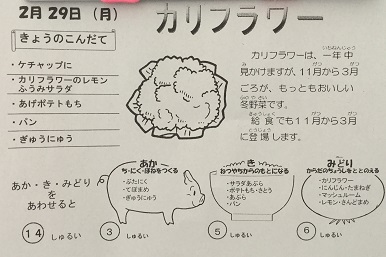 2月 29日 (月)
カリフラワー
きょうのこんだて
・ケチャップに
・カリフラワーのレモン
ふうみサラダ
・あげポテトもち
・パン
・ぎゅうにゅう
カリフラワーは、一年中
見かけますが、11月から3月
ごろが、もっともおいしい
冬野菜です。
給食でも11月から3月
に登場します。
あか・き・みどり
を
あわせると
14 しゅるい
あか
ち・にく・ほねをつくる
・ぶたにく
・てぼまめ
・ぎゅうにゅう
3 しゅるい
き
おつやちからのもとになる
・サラダあぶら
・ポテトもち・さとう
・あぶら
・パン
5 しゅるい
みどり
からだのちょうしをととのえる
・カリフラワー
・にんじん・たまねぎ
・マッシュルーム
・レモン・さんどまめ
6 しゅるい